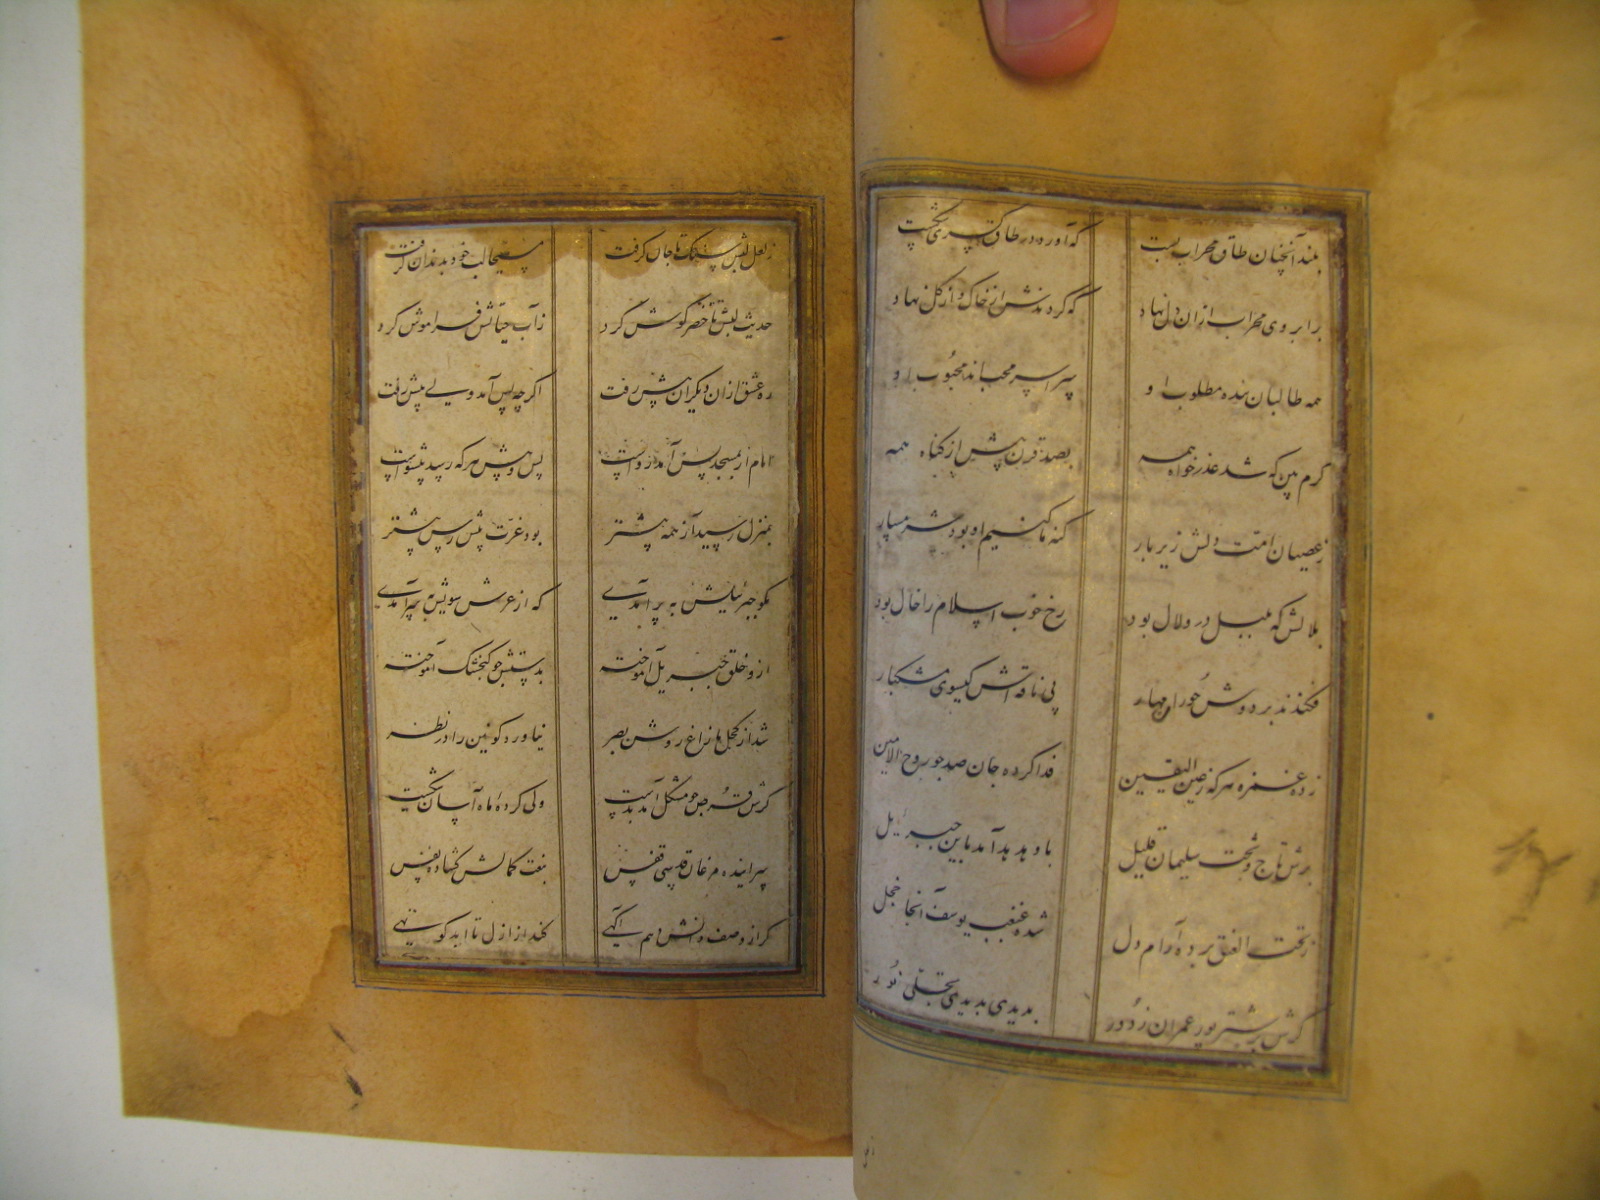 بلند آنچنان طاق محراب بست که آورد در طاق کسری شکست
برابروی محراب ازان دل نهاد که کردندش از خاک و از گل نهاد
همه طالبان بنده مطلوب او سراسر محباند محبوب او
کرم بین که شد عذرخواه همه بصد قرن پیش از گناه همه
زعصیان امت دلش زیر بار گنه ما کنیم او بود شرمسار
بلالش که بلبل در و لال بود رخ خوب اسلام را خال بود
فکندند بر دوش حوران مهار پی ناقه اتش گیسوی مشکبار
زده غمزه سرکه زعین الیقین فدا کرده جان صد چو روح الامین
برش تاج و تخت سلیمان قلیل باو بد بدآمد باین جبرئیل
زتخت الفق برده آرام دل شده غبغب یوسف آنجا خجل
گرش پیشتر پور عمران ز دور بدیدی بدیدی تجلی نور
ز لعل لبش سنگ تا جان گرفت مسیحا لب خود بدندان گرفت
حدیث لبش تا خضر گوش کرد زآب حیاتش فراموش کرد
ره عشق ازان دیگران پیش رفت اگرچه پس آمد ولی پیش رفت
امام ار بمسجد پس آمد رواست پس و پیش هرکه رسید پیشواست
بمنزل رسید آز همه پیشتر بود عزت پیش رس بیشتر
نگو جبرئیلش به پر آمدی که از عرش سویش بسر آمدی
ازو خلق جبریل آموخته بدستش چو گنجشک آموخته
شد از کحل ما زاغ روشن بصر نیاورده کونین را در نظر
گرش قرص جو مشکل آمد بدست ولی کرده ماه آسان شکست
سراینده مرغان قدسی قفس بنعت کمالش گشاده نفس
گر از وصف دانش دهم آگهی کند از ازل تا ابد کوتهی